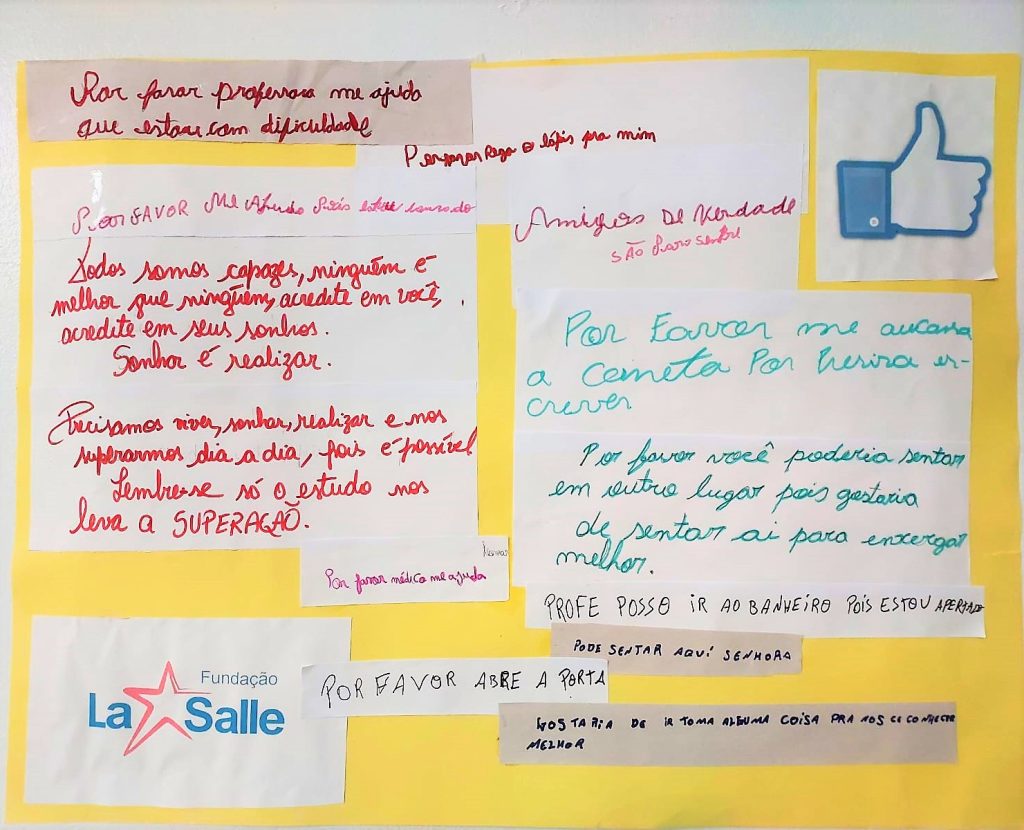 Por favor professora me ajuda
que estou com dificuldade
Por favor Pega o lápis pra mim
Por FAVOR Me
Amigos De Verdade
SÃO Para Sempre
Todos somos capazes, ninguém é
melhor que ninguém, acredite em você,
acredite em seus sonhos.
Sonhar é realizar.
Por Favor me
a caneta Por es-
crever
Precisamos viver, sonhar, realizar e nos
superarmos dia a dia, pois é possível
Lembre-se só o estudo nos
leva a SUPERAÇÃO.
Por favor você poderia sentar
em outro lugar pois gostaria
de sentar ai para enxergar
melhor.
Por favor médico me ajuda
PROFE POSSO IR AO BANHEIRO POIS ESTOU APERTADO
PODE SENTAR AQUÍ SENHORA
POR FAVOR ABRE A PORTA
Fundação
La Salle
GOSTARIA DE IR TOMA ALGUMA COISA PRA NOS CE CONHECER
MELHOR